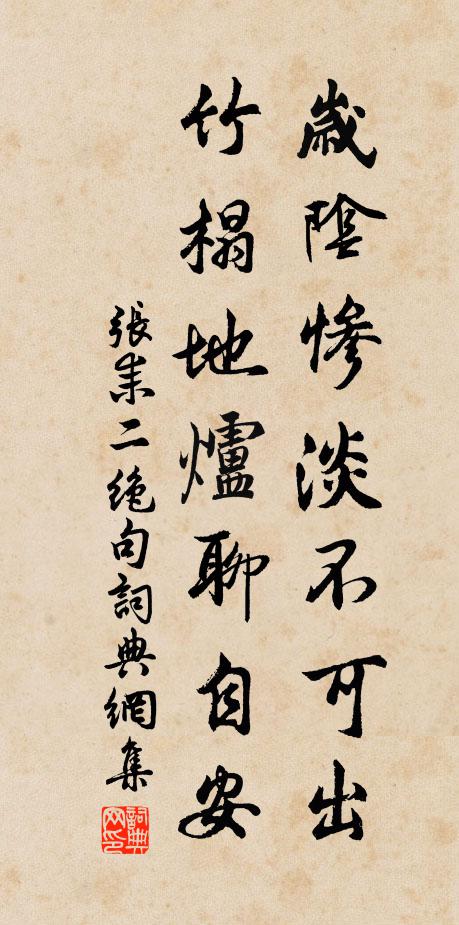 歲陰慘淡不可出
竹榻地爐聊自安
張耒二絶句詞典網集
詞典网印